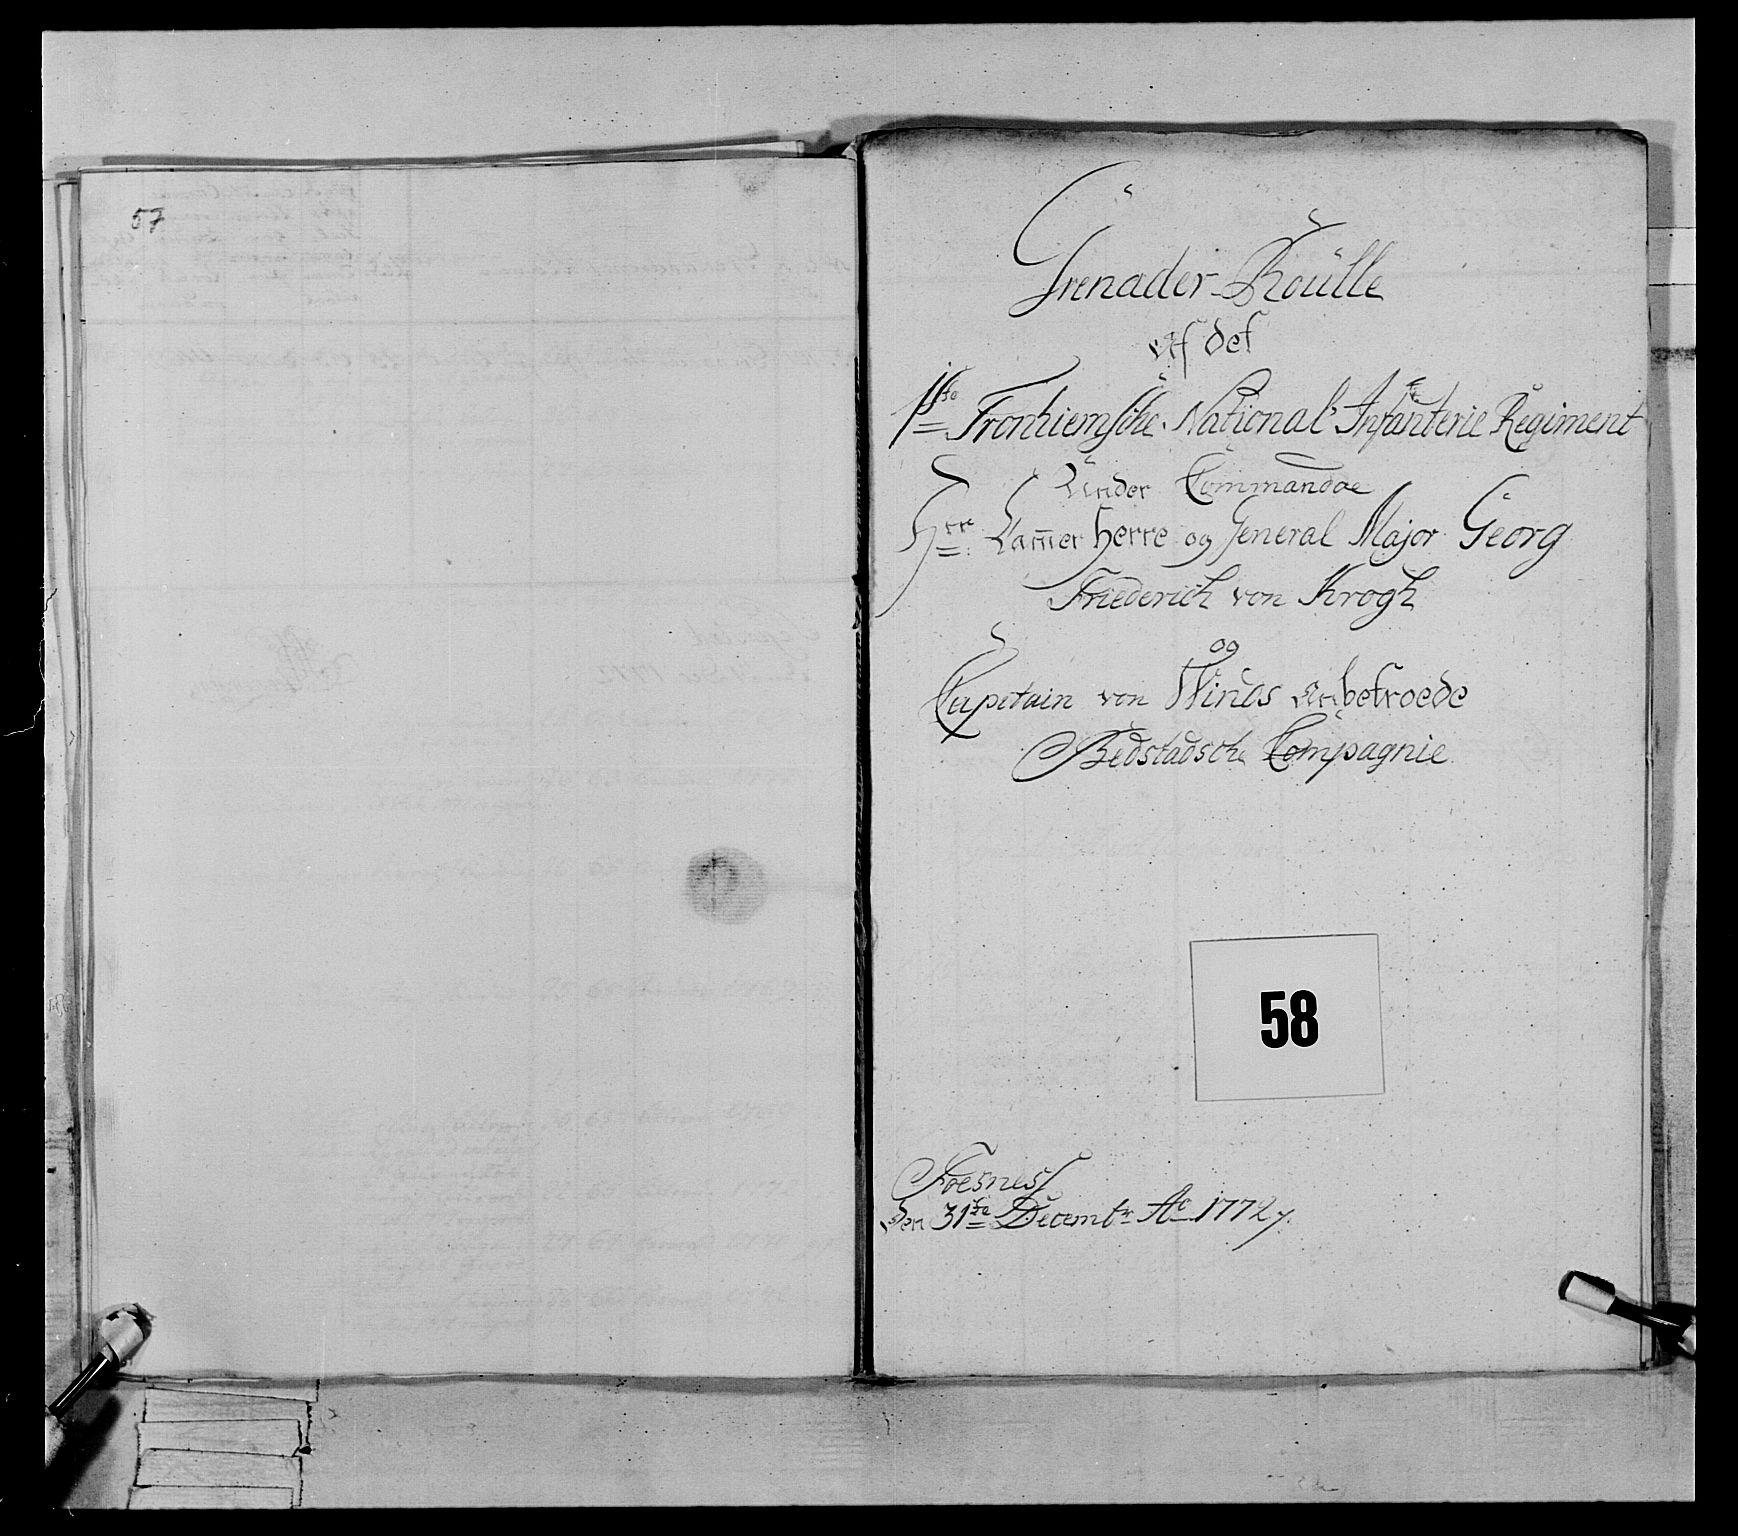 57
Grenader-Roülle
af det
1ste Tronhiemsche National Infanterie Regiment
Ünder Commandoe
Hrr: Kam̄er herre og General Major Georg
Friederich von Krogh
og
Capitain von Winds anbetroede
Bedstadsche Compagnie
58
Foesness
den 31te Decembr Ao 1772